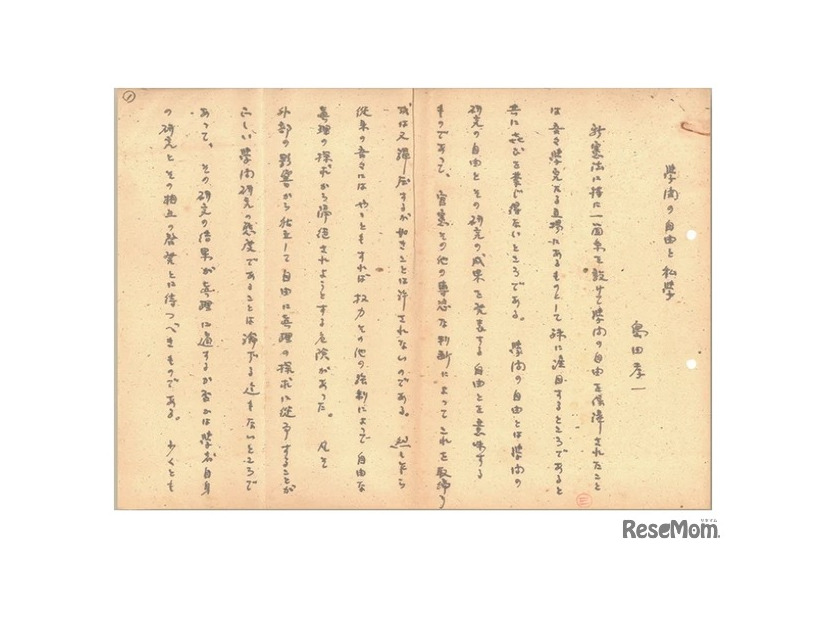 学問の自由と私学
島田孝一
新憲法に特に一箇条を設けて学問の自由を保障されたこと
は吾々学究たる立場にあるものとして殊に注目するところであると
共に喜びを禁じ得ないところである。 学問の自由とは学問の
研究の自由とその研究の成果を発表する自由とを意味する
ものであって、官憲その他の専恣な判断によってこれを取締り
或は又弾圧するが如きことは許されないのである。 然しながら
従来の吾々にはやゝともすれば权力その他の強制によって自由な
真理の探求から帰従されようとする危険があった。 凡そ
外部の影響から独立して自由に真理の探求に従事することが
正しい学問研究の態度であることは論ずる迄もないところで
あって、その研究の結果が真理に適するか否かは学者自身
の研究とその独立の啓発とに待つべきものである。 少くとも
1
三
ReseMom.
リセマム